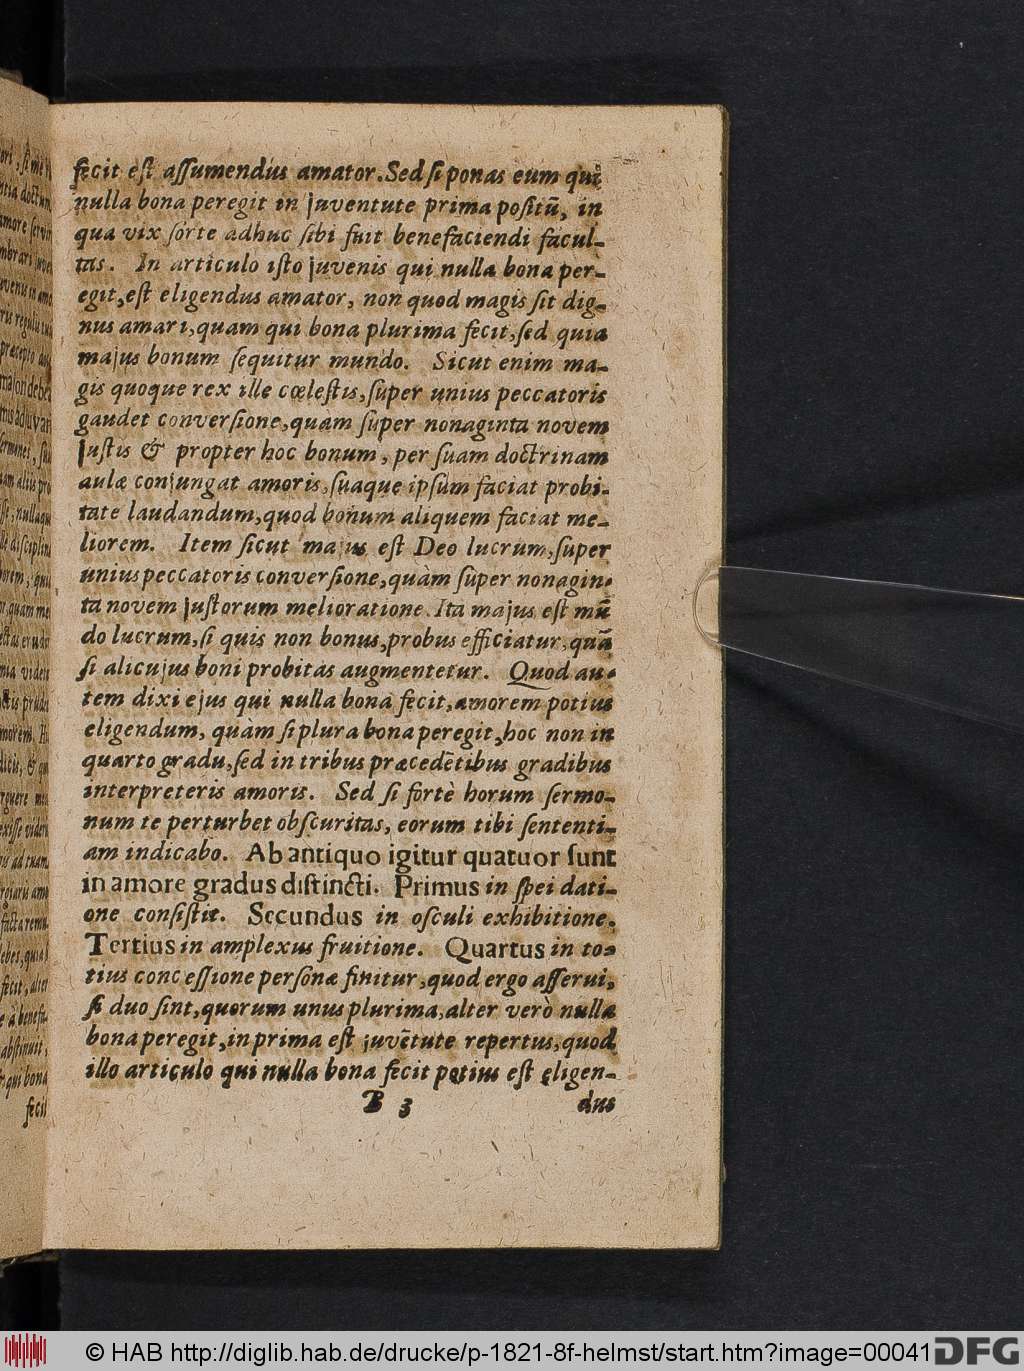 fecit est assumendus amator. Sed si ponas eum qui
nulla bona peregit in juventute prima positū, in
qua vix forte adhuc sibi fuit benefaciendi facul-
tas. In articulo isto juvenis qui nulla bona per-
egit, est eligendus amator, non quod magis sit dig-
nus amari, quam qui bona plurima fecit, sed quia
majus bonum sequitur mundo. Sicut enim ma-
gis quoque rex ille cœlestis, super unius peccatoris
gaudet conversione, quàm super nonaginta novem
justis & propter hoc bonum, per suam doctrinam
aulæ conjungat amoris, suaque ipsum faciat probi-
tate laudandum, quod bonum aliquem faciat me-
liorem. Item sicut majus est Deo lucrum, super
unius peccatoris conversione, quàm super nonagin-
ta novem justorum melioratione. Ita majus est mū
do lucrum, si quis non bonus, probus efficiatur, quā
si alicujus boni probitas augmentetur. Quod au-
tem dixi ejus qui nulla bona fecit, amorem potius
eligendum, quàm si plura bona peregit, hoc non in
quarto gradu, sed in tribus præcedētibus gradibus
interpreteris amoris. Sed si fortè horum sermo-
num te perturbet obscuritas, eorum tibi sententi-
am indicabo. Ab antiquo igitur quatuor sunt
in amore gradus distincti. Primus in spei dati-
one consistit. Secundus in osculi exhibitione.
Tertius in amplexus fruitione. Quartus in to-
tius concessione personæ finitur, quod ergo asserui,
si duo sint, quorum unus plurima, alter verò nulla
bona peregit, in prima est juvētute repertus, quod
illo articulo qui nulla bona fecit potius est eligen-
B 3 dus
fecit
© HAB http://diglib.hab.de/drucke/p-1821-8f-helmst/start.htm?image=00041
DFG